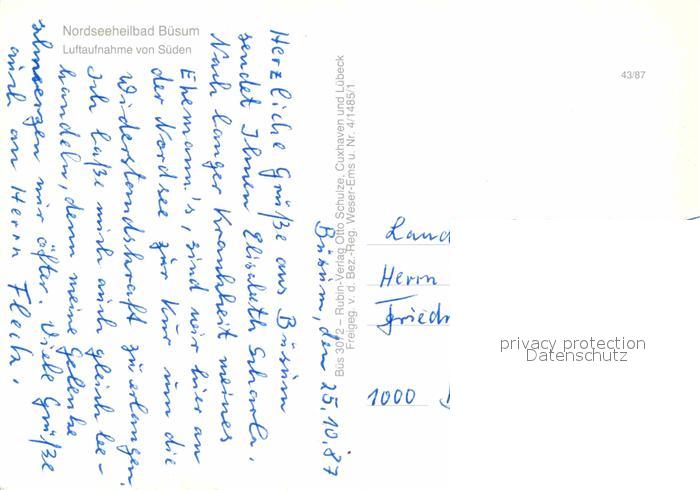 Nordseeheilbad Büsum
Luftaufnahme von Süden
43/87
Büs 3012 – Rubin-Verlag Otto Schulze, Cuxhaven und Lübeck
Freigeg. v. d. Bez.-Reg. Weser-Ems u. Nr. 4/1485/1
Büsum, den 25.10.87
Herzliche Grüße aus Büsum
sendet Ihnen Elisabeth Scharln.
Nach langer Krankheit meines
Ehemann's, sind wir hier an
der Nordsee zur Kur um die
Widerstandskraft zu erlangen.
Ich laße mich auch gleich be-
handeln, denn meine Gelenke
schmerzen mir öfter. Viele Grüße
auch an Herrn Flech.
Land
Herrn
Friedr
1000
privacy protection
Datenschutz